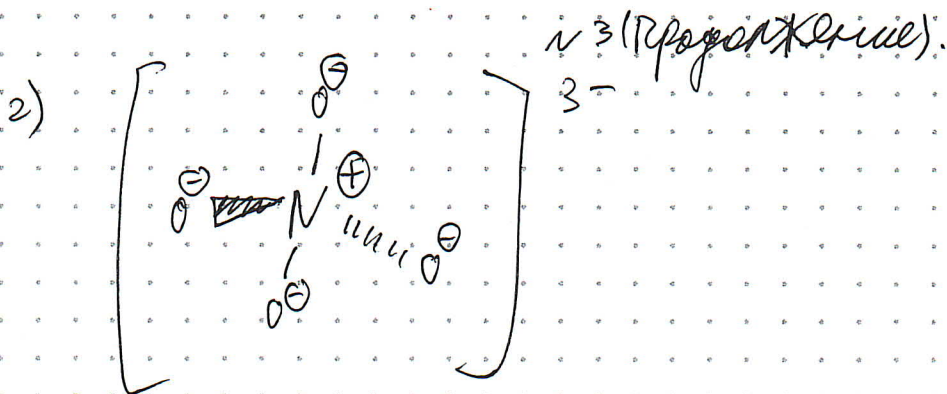 N3 (Продолжение).
2)
3-
O⊖
O⊖ N⊕ O⊖
O⊖